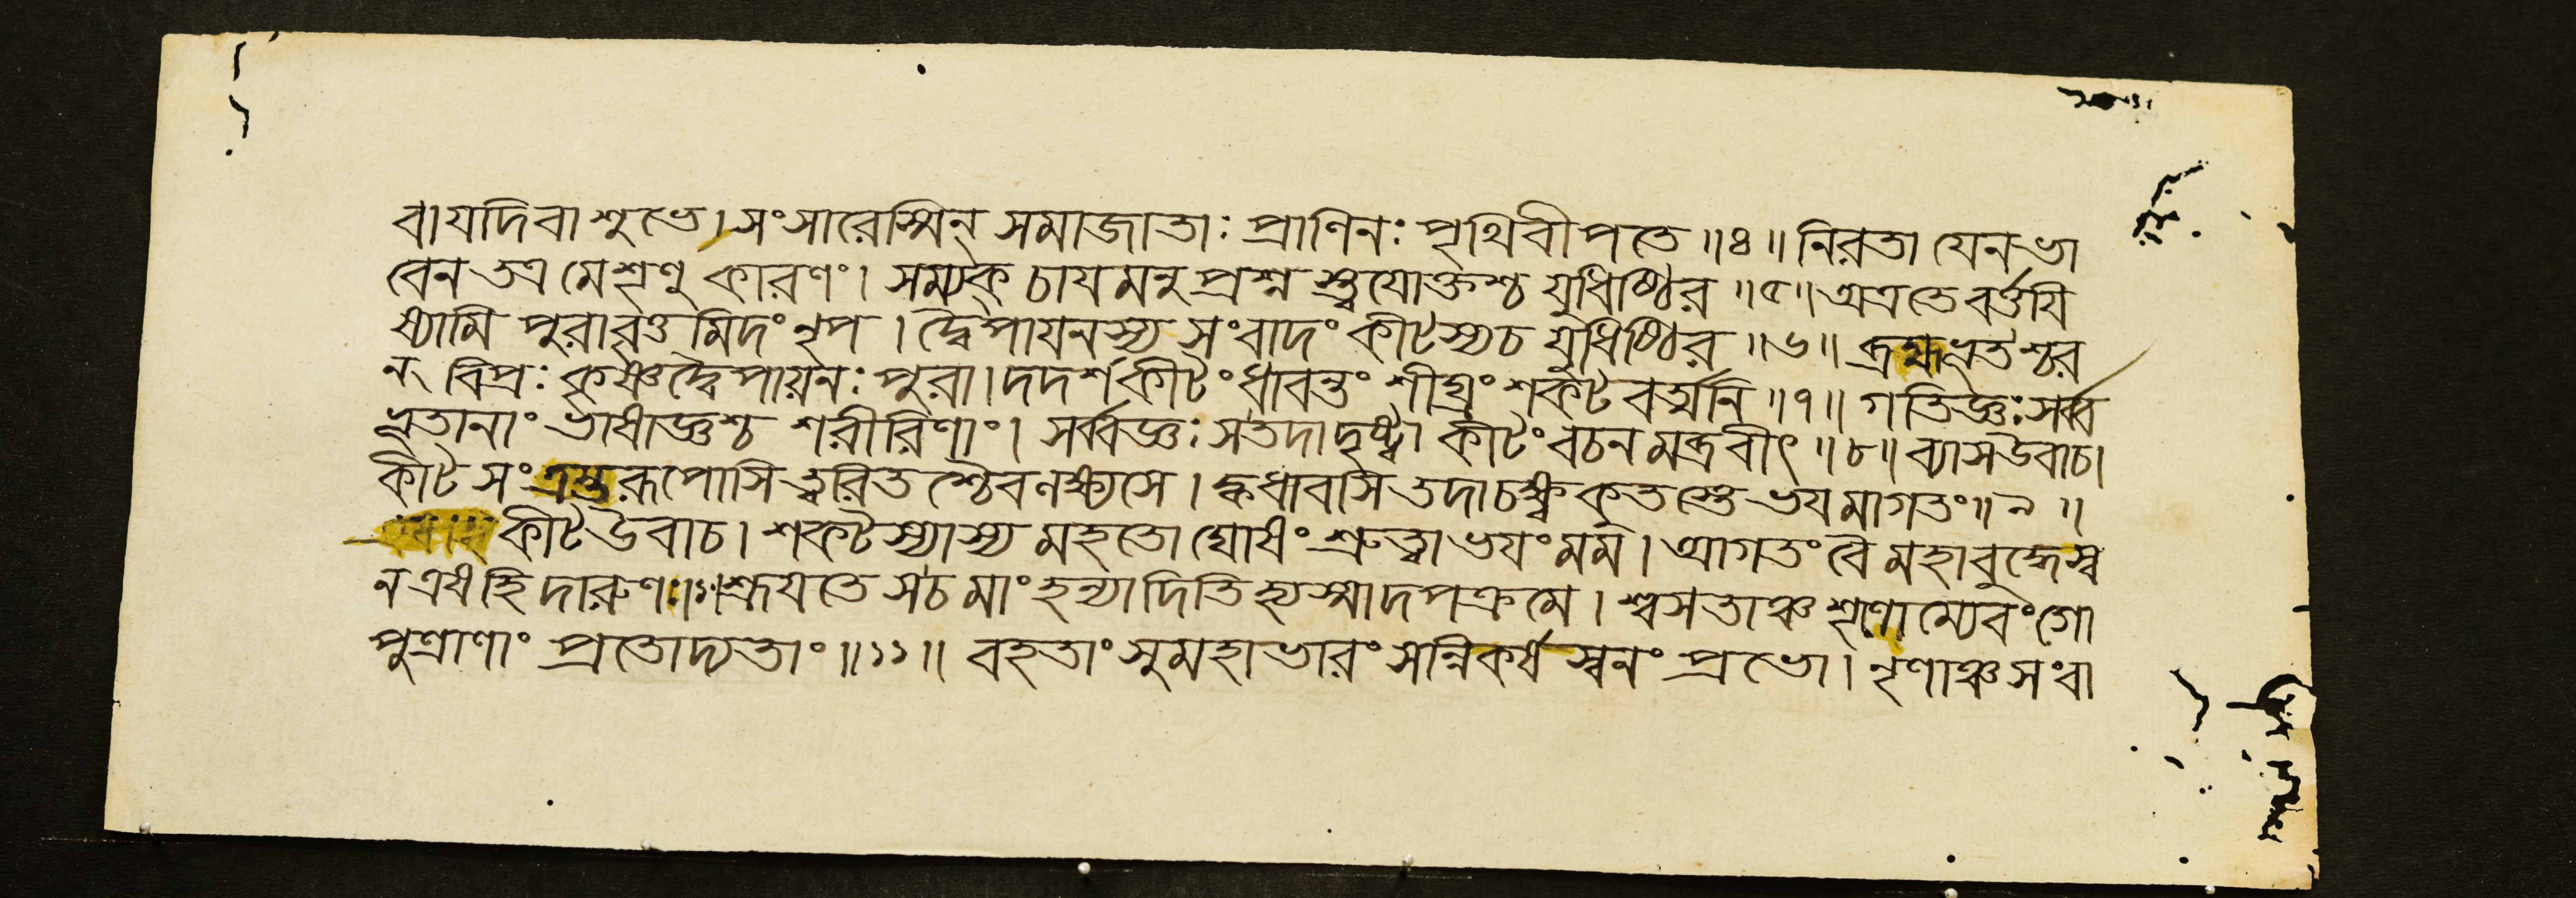 বা যদি বা শুভে। সংসারেস্মিন্ সমাজাতাঃ প্রাণিনঃ পৃথিবীপতে॥৪॥ নিরতা যেন ভা
বেন তত্র মে শৃণু কারণং। সম্যক্ চাযমনুপ্রশ্ন স্ত্বযোক্তশ্চ যুধিষ্ঠির॥৫॥ অত্র তে বর্ত্তযি
ষ্যামি পুরাবৃত্তমিদং নৃপ। দ্বৈপাযনস্য সংবাদং কীটস্য চ যুধিষ্ঠির॥৬॥ ব্রহ্মভূতশ্চর
ন্ বিপ্রঃ কৃষ্ণদ্বৈপায়নঃ পুরা। দদর্শ কীটং ধাবন্তং শীঘ্রং শকটবর্ত্মনি॥৭॥ গতিজ্ঞঃ সর্ব্ব
ভূতানাং ভাষাজ্ঞশ্চ শরীরিণাং। সর্ব্বজ্ঞঃ স তদা দৃষ্ট্বা কীটং বচনমব্রবীৎ॥৮॥ ব্যাস উবাচ।
কীট সংত্রস্তরূপোসি ত্বরিতশ্চৈব লক্ষ্যসে। ক্ক ধাবসি তদাচক্ষ্ব কুতস্তে ভযমাগতং॥৯॥
কীট উবাচ। শকটস্যাস্য মহতো ঘোষং শ্রুত্বা ভযং মম। আগতং বৈ মহাবুদ্ধে স্ব
ন এষ হি দারুণঃ॥১০॥ শ্রূযতে স চ মাং হন্যাদিতি হ্যস্মাদপক্রমে। শ্বসতাঞ্চ শৃণোম্যেবং গো
পুত্রাণাং প্রতোদ্যতাং॥১১॥ বহতাং সুমহাভারং সন্নিকর্ষ স্বনং প্রভো। নৃণাঞ্চ সংবা